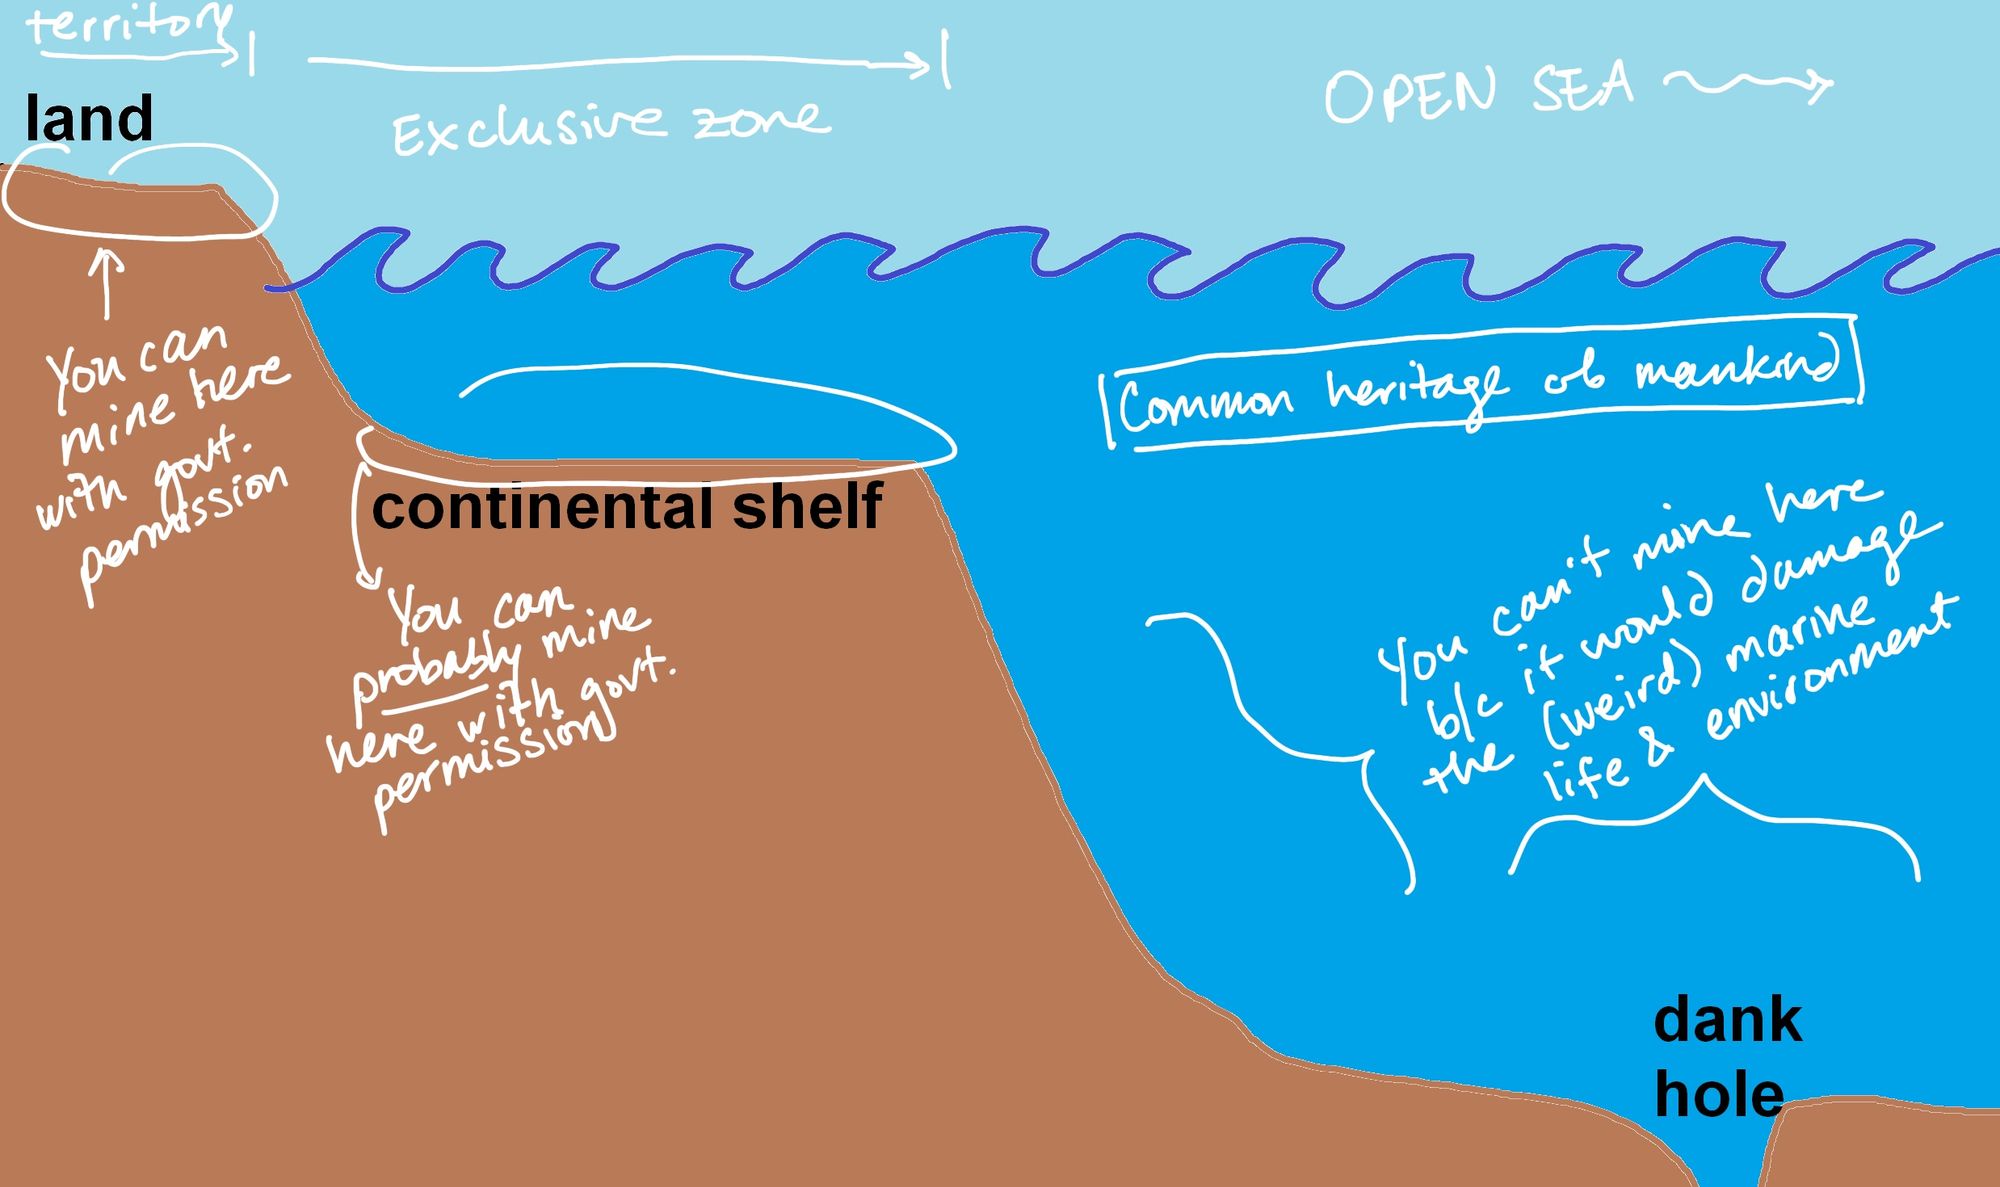 territory
land
Exclusive zone
OPEN SEA
You can
mine here
with govt.
permission
continental shelf
You can
probably mine
here with govt.
permission
Common heritage of mankind
You can't mine here
b/c it would damage
the (weird) marine
life & environment
dank
hole